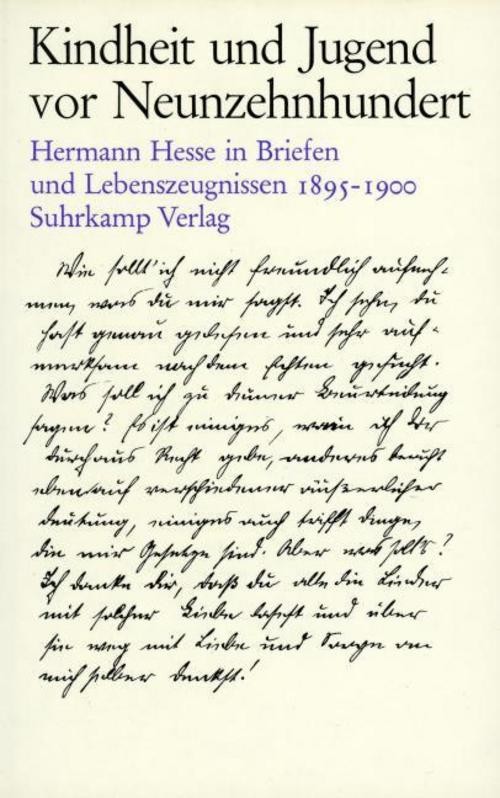 Kindheit und Jugend
vor Neunzehnhundert
Hermann Hesse in Briefen
und Lebenszeugnissen 1895-1900
Suhrkamp Verlag
Wie sollt' ich nicht freundlich aufneh-
men, was du mir sagst. Ich sehe, du
hast genau gelesen und sehr auf-
merksam nach dem Echten gesucht.
Was soll ich zu deiner Beurteilung
sagen? Es ist einiges, worin ich dir
durchaus Recht gebe, anderes beruht
eben auf verschiedener äusserlicher
deutung, einiges auch trifft dinge,
die mir Gesetze sind. Aber was solls?
Ich danke dir, daß du alle die Lieder
mit solcher Liebe lasest und über
sie weg mit Liebe und Sorge an
mich selber denkst!